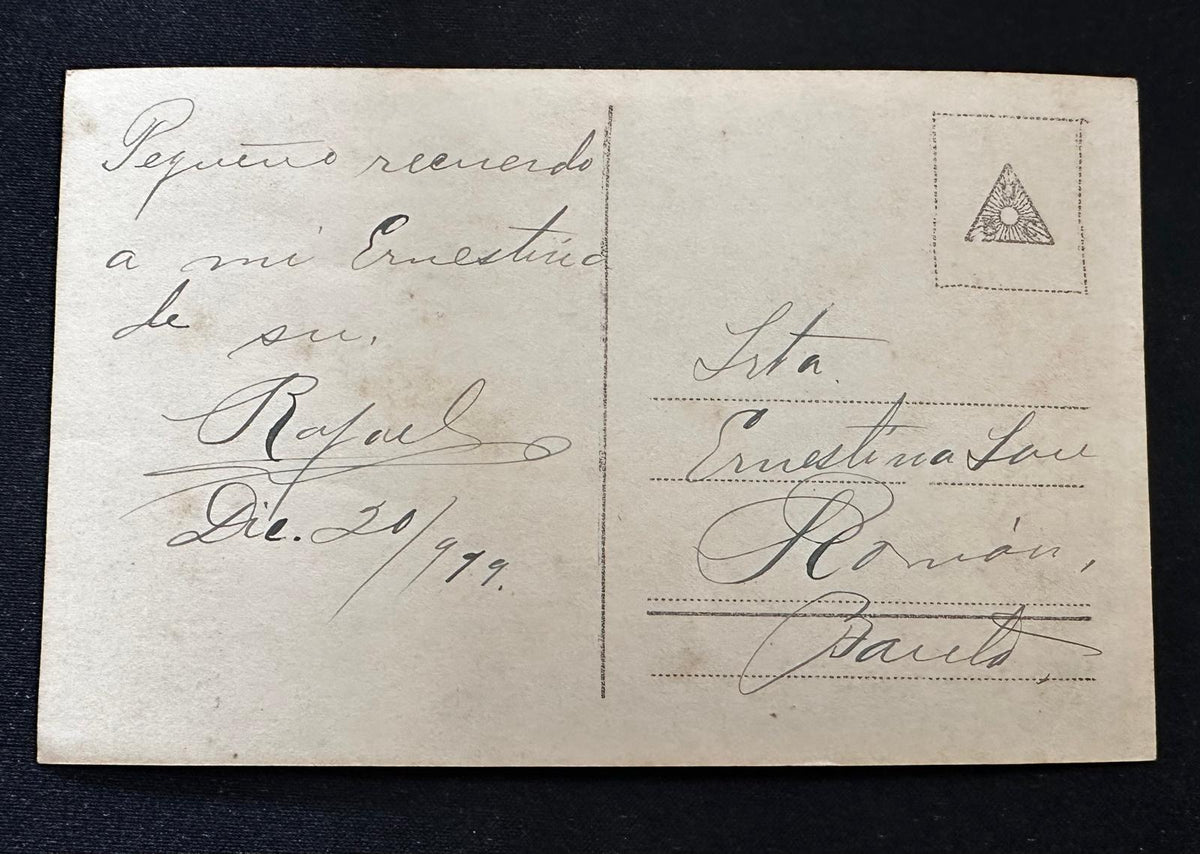 Pequeño recuerdo
a mi Ernestina
de su.
Rafael
Dic. 20/919.
Srta.
Ernestina
Román,